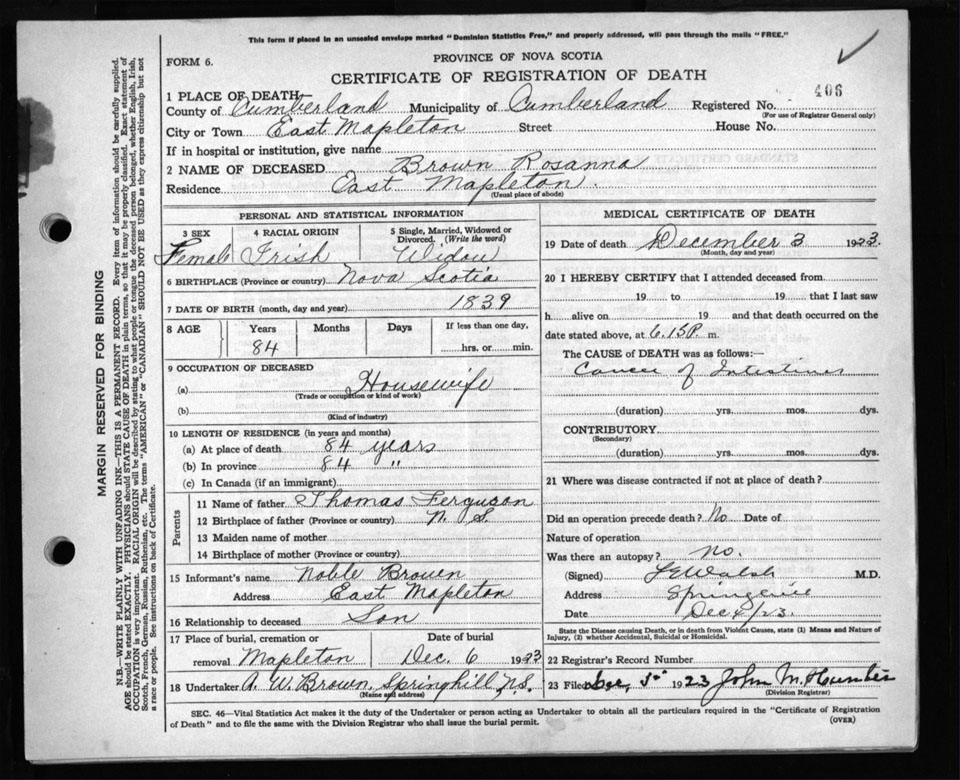 This form if placed in an unsealed envelope marked "Dominion Statistics Free," and properly addressed, will pass through the mails "FREE."
FORM 6.
PROVINCE OF NOVA SCOTIA
CERTIFICATE OF REGISTRATION OF DEATH
1 PLACE OF DEATH
County of Cumberland Municipality of Cumberland Registered No. 406
(For use of Registrar General only)
City or Town East Mapleton Street House No.
If in hospital or institution, give name
2 NAME OF DECEASED Brown Rosanna
Residence East Mapleton.
(Usual place of abode)
PERSONAL AND STATISTICAL INFORMATION
3 SEX 4 RACIAL ORIGIN 5 Single, Married, Widowed or
Divorced. (Write the word)
Female Irish Widow
6 BIRTHPLACE (Province or country) Nova Scotia
7 DATE OF BIRTH (month, day and year) 1839
8 AGE Years Months Days If less than one day,
84 hrs. or min.
9 OCCUPATION OF DECEASED
(a) Housewife
(Trade or occupation or kind of work)
(b)
(Kind of industry)
10 LENGTH OF RESIDENCE (in years and months)
(a) At place of death 84 years
(b) In province 84 "
(c) In Canada (if an immigrant)
Parents
11 Name of father Thomas Ferguson
12 Birthplace of father (Province or country) N. S.
13 Maiden name of mother
14 Birthplace of mother (Province or country)
15 Informant's name Noble Brown
Address East Mapleton
16 Relationship to deceased Son
17 Place of burial, cremation or Date of burial
removal Mapleton Dec. 6 1923
18 Undertaker A. W. Brown, Springhill N.S.
(Name and address)
MEDICAL CERTIFICATE OF DEATH
19 Date of death December 3 1923.
(Month, day and year)
20 I HEREBY CERTIFY that I attended deceased from
19 to 19 that I last saw
h alive on 19 and that death occurred on the
date stated above, at 6.15 P. m.
The CAUSE of DEATH was as follows:—
Cancer of Intestines
(duration) yrs. mos. dys.
CONTRIBUTORY
(Secondary)
(duration) yrs. mos. dys.
21 Where was disease contracted if not at place of death?
Did an operation precede death? No Date of
Nature of operation
Was there an autopsy? no.
(Signed) Walsh M.D.
Address
Date Dec 4/23.
State the Disease causing Death, or in death from Violent Causes, state (1) Means and Nature of
Injury, (2) whether Accidental, Suicidal or Homicidal.
22 Registrar's Record Number
23 Filed Dec, 5" 1923 John M. Hunter
(Division Registrar)
SEC. 46—Vital Statistics Act makes it the duty of the Undertaker or person acting as Undertaker to obtain all the particulars required in the "Certificate of Registration
of Death" and to file the same with the Division Registrar who shall issue the burial permit.
(OVER)
MARGIN RESERVED FOR BINDING
N.B.—WRITE PLAINLY WITH UNFADING INK—THIS IS A PERMANENT RECORD. Every item of information should be carefully supplied.
AGE should be stated EXACTLY. PHYSICIANS should STATE CAUSE OF DEATH in plain terms, so that it may be properly classified. Exact statement of
OCCUPATION is very important. RACIAL ORIGIN will be described by stating to what people or tongue the deceased person belonged, whether English, Irish,
Scotch, French, German, Russian, Ruthenian, etc. The terms "AMERICAN" or "CANADIAN" SHOULD NOT BE USED as they express citizenship but not
a race or people. See instructions on back of Certificate.